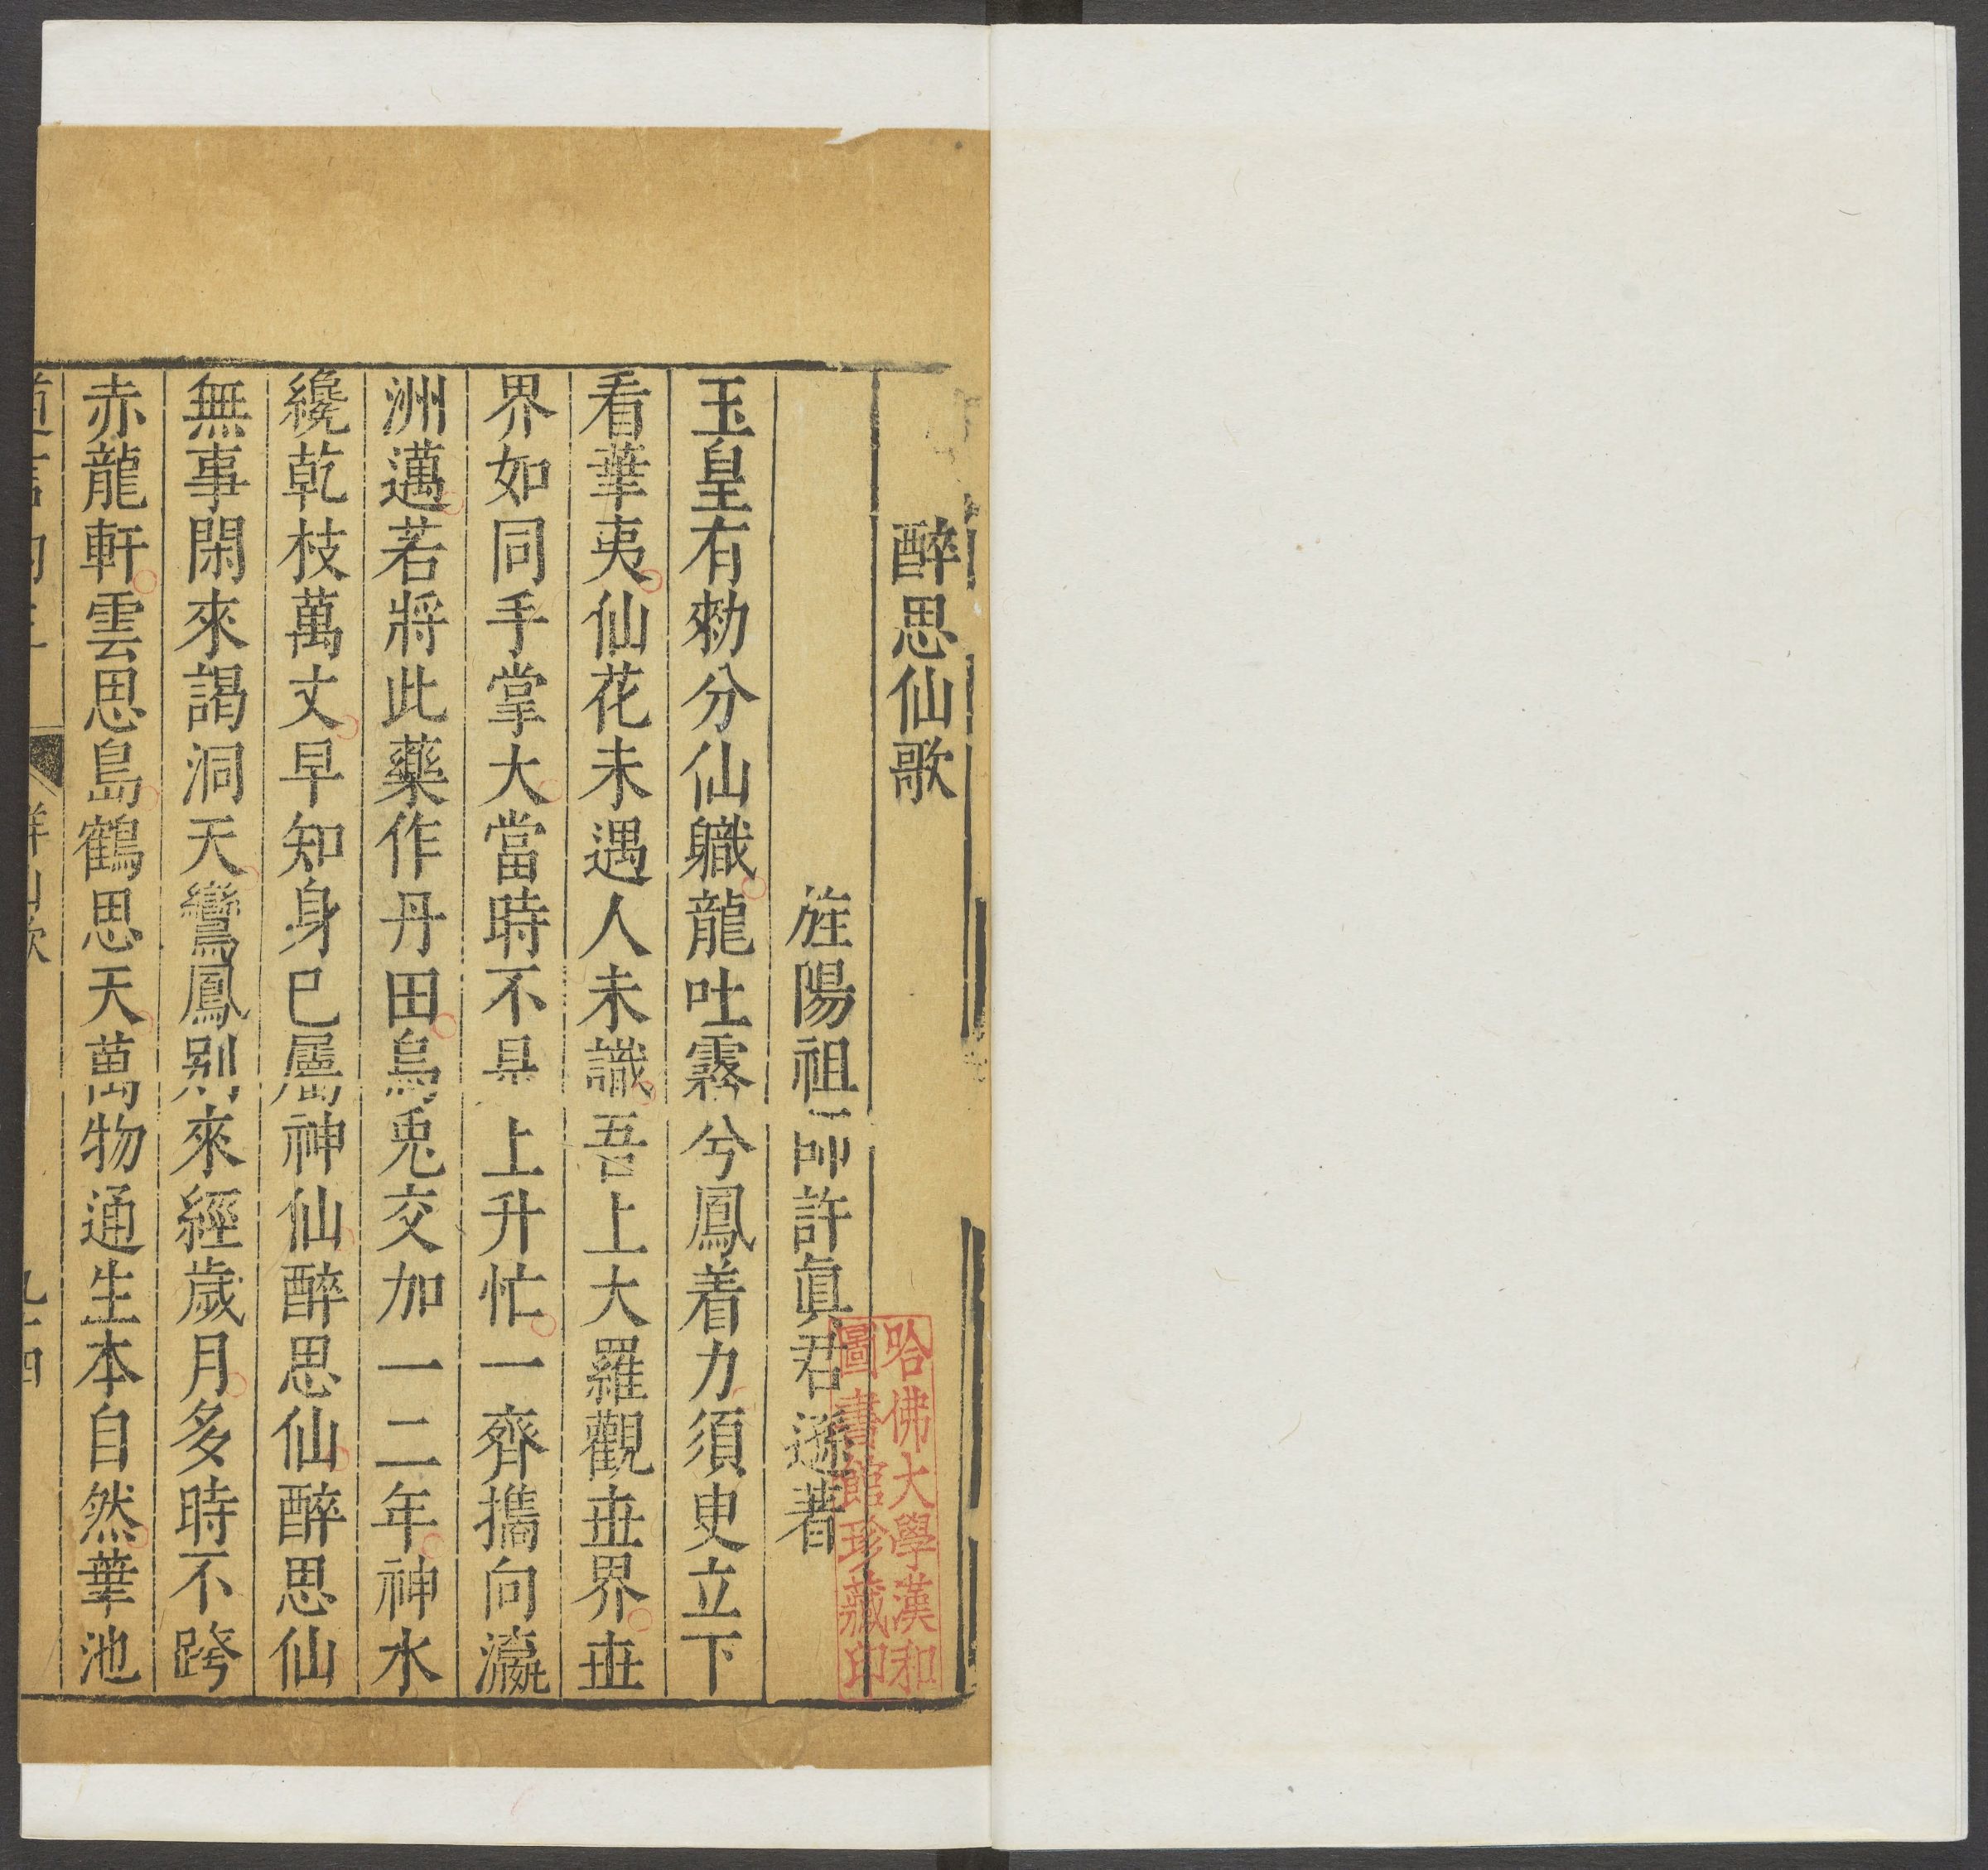 醉思仙歌
旌陽祖師許眞君遜著
玉皇有勑分仙軄龍吐霧兮鳳着力須臾立下
看華夷仙花未遇人未識吾上大羅觀丗界丗
界如同手掌大當時不是上升忙一齊攜向瀛
洲邁若將此藥作丹田烏兎交加一二年神水
纔乾枝萬丈早知身已屬神仙醉思仙醉思仙
無事閑來謁洞天鸞鳳別來經歲月多時不跨
赤龍軒雲思島鶴思天萬物通生本自然華池
哈佛大學漢和
圖書館珍藏印